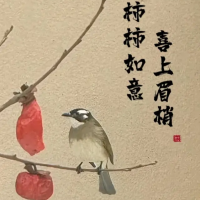 喜上眉梢
柿柿如意